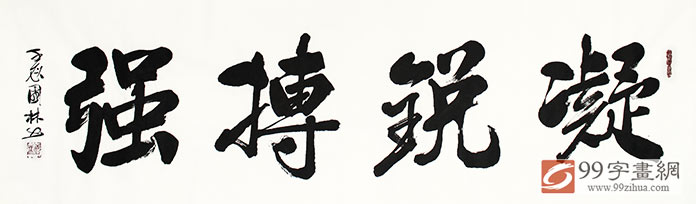 凝鋭搏强
國林
99字畫網
www.99zihua.com